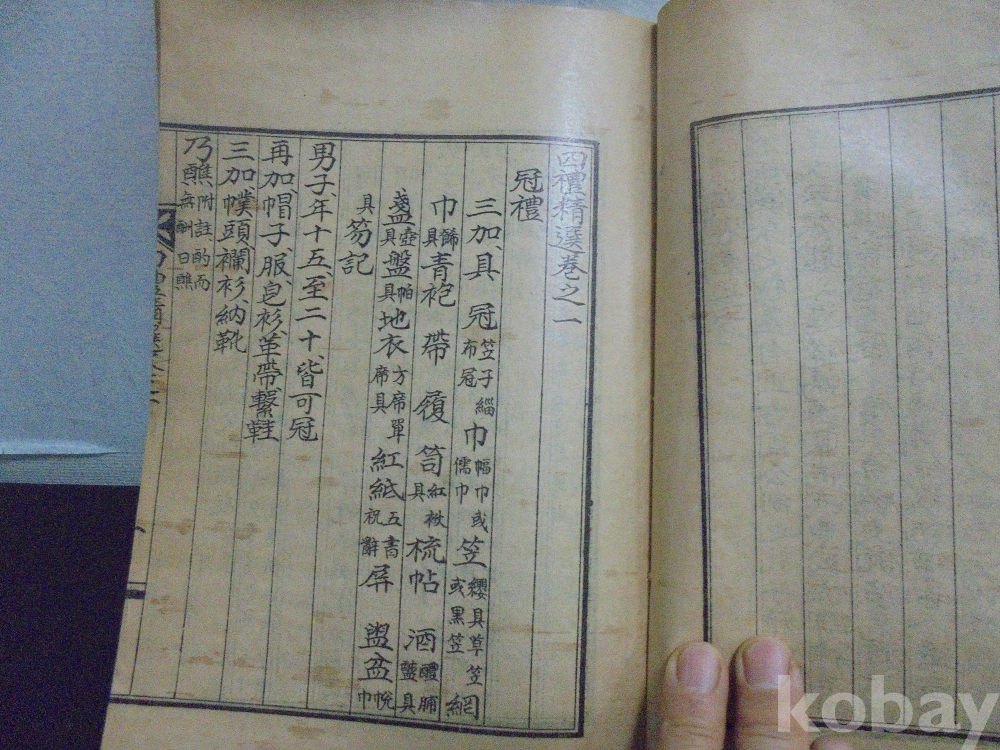 四禮精選卷之一
冠禮
三加具 冠 笠子緇布冠 巾 幅巾或儒巾 笠 纓具草笠或黑笠 網
巾 飾具 青袍 帶 履 笥 紅袱具 梳帖 酒 醴脯醢具
盞 壺具 盤 帕具 地衣 方席單席具 紅紙 五書祝辭 屛 盥盆 帨巾
具 笏記
男子年十五至二十皆可冠
再加帽子服皂衫革帶繫鞋
三加幞頭襴衫納靴
乃醮 附註酌而無酬曰醮
kobay